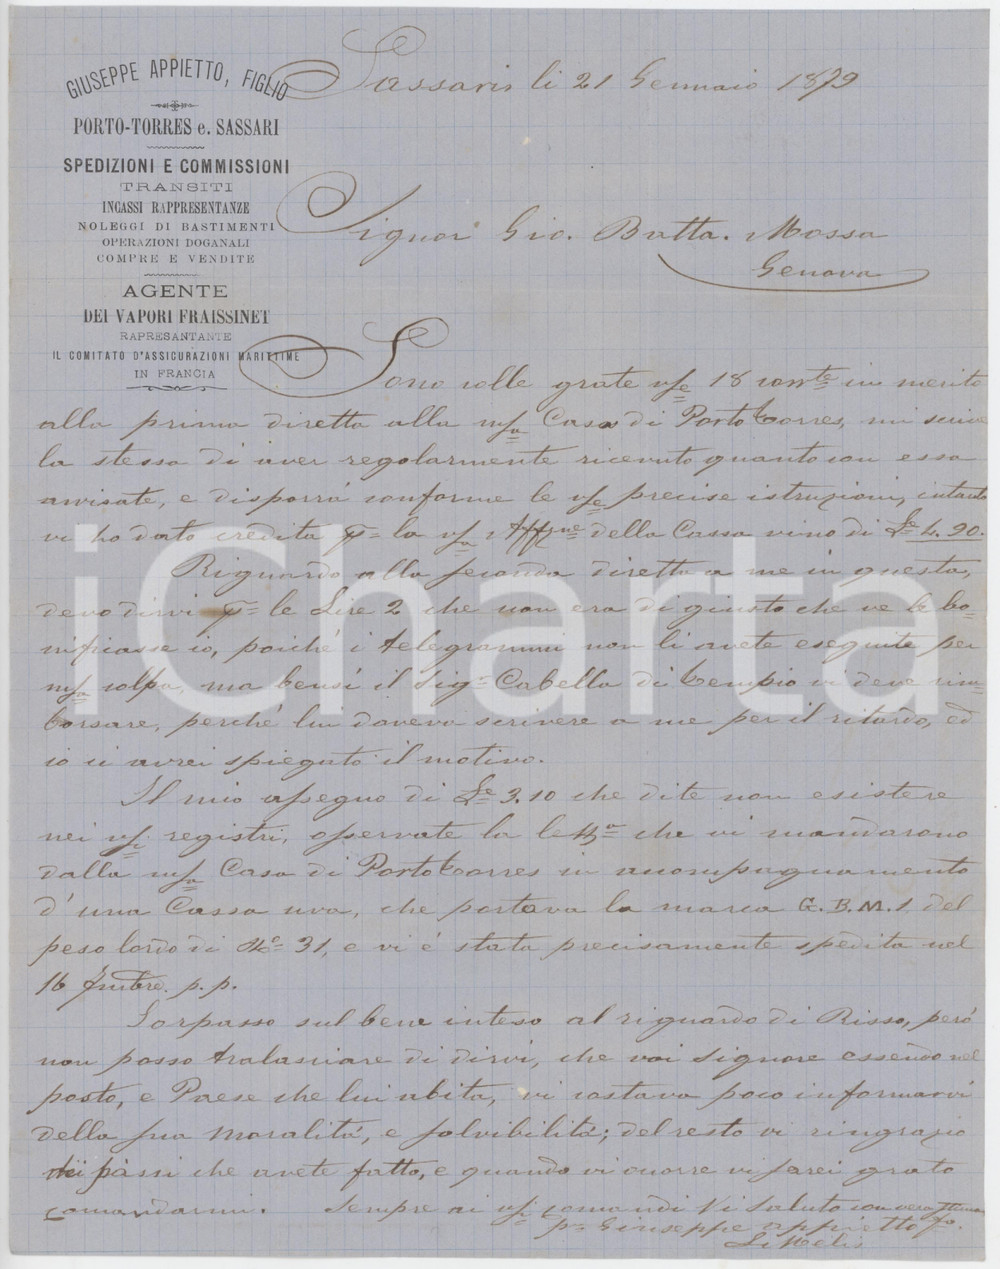 GIUSEPPE APPIETTO, FIGLIO
PORTO-TORRES e. SASSARI
SPEDIZIONI E COMMISSIONI
TRANSITI
INCASSI RAPPRESENTANZE
NOLEGGI DI BASTIMENTI
OPERAZIONI DOGANALI
COMPRE E VENDITE
AGENTE
DEI VAPORI FRAISSINET
RAPRESANTANTE
IL COMITATO D'ASSICURAZIONI MARITTIME
IN FRANCIA
Sassari li 21 Gennaio 1879
Signor Gio. Batta. Mossa
Genova
Sono colle grate vse 18 corrte in merito
alla prima diretta alla msa Casa di Porto Torres, mi scrive
la stessa di aver regolarmente ricevuto quanto con essa
avvisate, e disporrà conforme le vse precise istruzioni, intanto
vi ho dato credita la vsa della Cassa vino di Le 4.90.
Riguardo alla seconda diretta a me in questa,
devo dirvi le Lire 2 che non era di giusto che ve le bo-
nificasse io, poiché i telegrammi non li avete eseguite per
msa colpa, ma bensì il Sigr Cabella di Tempio vi deve rim-
borsare, perché lui doveva scrivere a me per il ritardo, ed
io ci avrei spiegato il motivo.
Il mio assegno di Le 3.10 che dite non esistere
nei vsi registri, osservate la che vi mandarono
dalla msa Casa di Porto Torres in accompagnamento
d'una Cassa uva, che portava la marca G.B.M.1 del
peso lordo di Ko 31, e vi é stata precisamente spedita nel
16 p.p.
Sorpasso sul bene inteso al riguardo di Risso, peró
non posso tralasciare di dirvi, che voi Signore essendo nel
posto, e Paese che lui abita, vi costava poco informarvi
della sua moralitá, e solvibilitá; del resto vi ringrazio
dei passi che avete fatto, e quando vi occorre vi sarei grato
comandarmi. Sempre ai vsi comandi Vi Saluto con vera
pr Giuseppe appietto fo.
iCharta